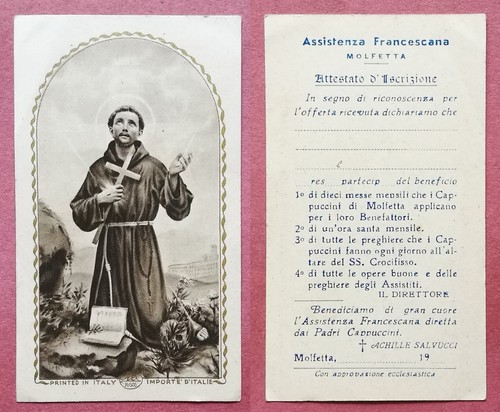 PRINTED IN ITALY
IMPORTÉ D'ITALIE
Assistenza Francescana
MOLFETTA
Attestato d'Iscrizione
In segno di riconoscenza per
l'offerta ricevuta dichiariamo che
e
res partecip del beneficio
1º di dieci messe mensili che i Cap-
puccini di Molfetta applicano
per i loro Benefattori.
2º di un'ora santa mensile.
3º di tutte le preghiere che i Cap-
puccini fanno ogni giorno all'al-
tare del SS. Crocifisso.
4º di tutte le opere buone e delle
preghiere degli Assistiti.
IL DIRETTORE
Benediciamo di gran cuore
l'Assistenza Francescana diretta
dai Padri Cappuccini.
† ACHILLE SALVUCCI
Molfetta, 19
Con approvazione ecclesiastica